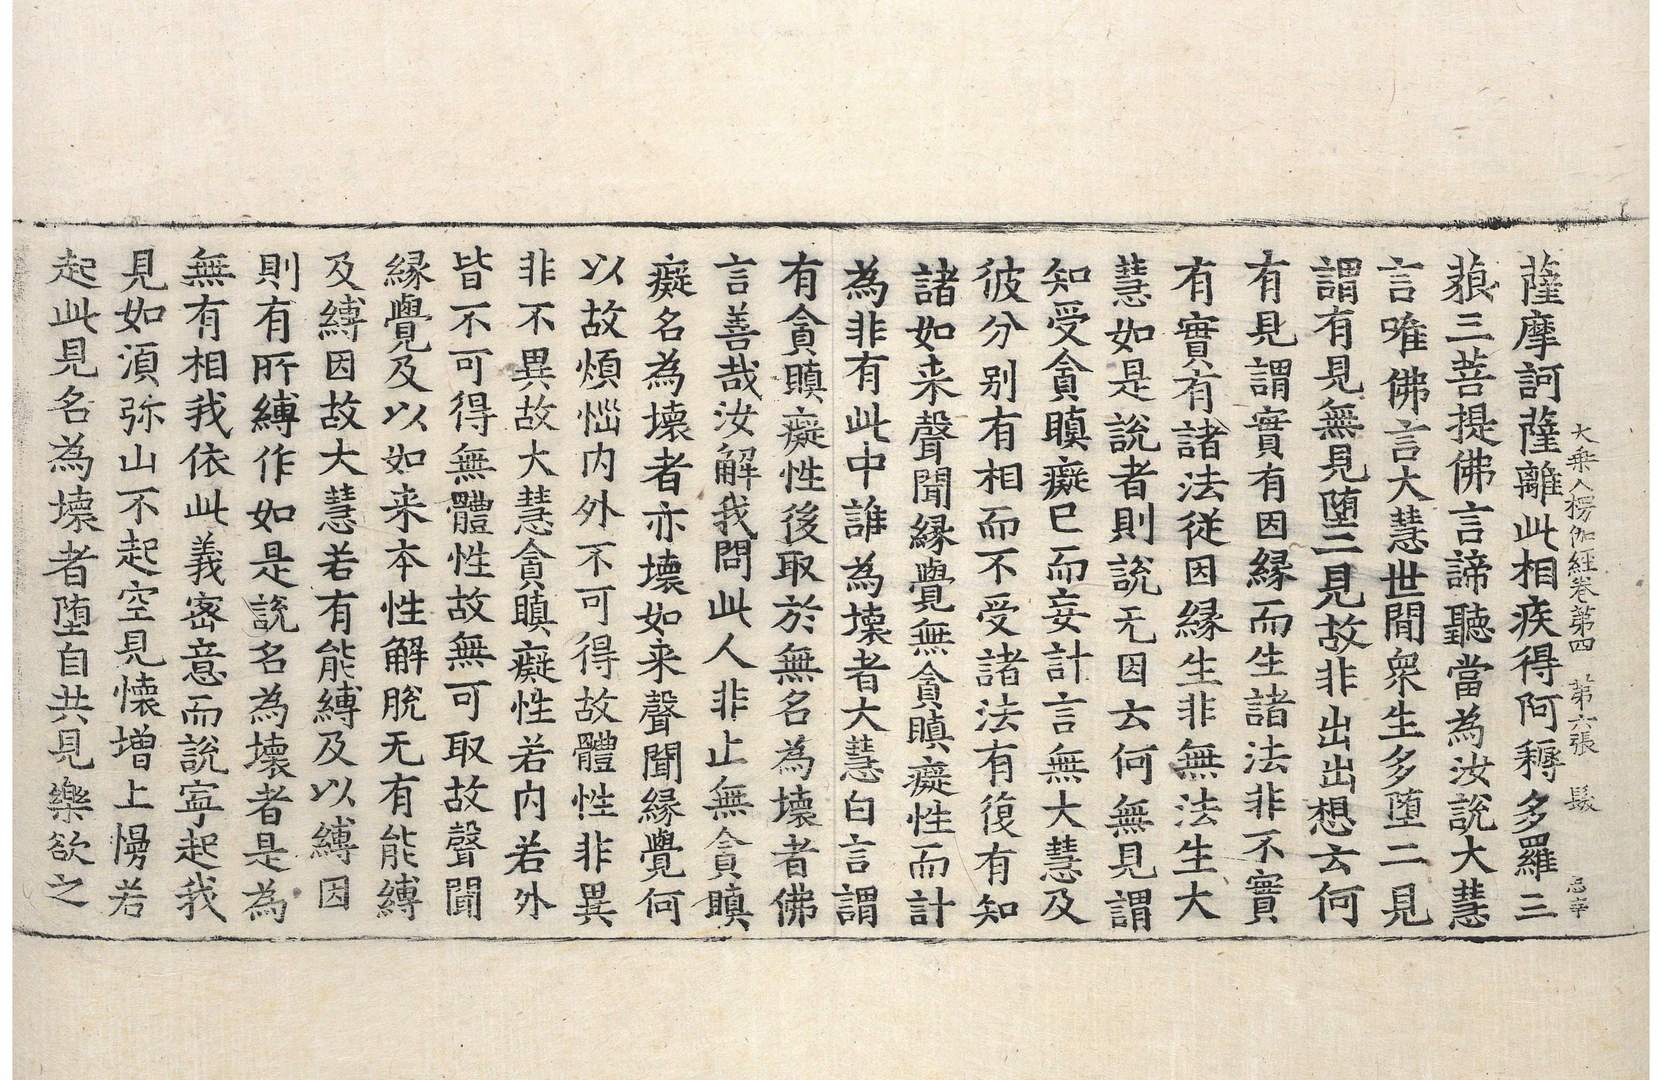 大乗入楞伽経卷第四 第六張 髮
薩摩訶薩離此相疾得阿耨多羅三
藐三菩提佛言諦聽當為汝說大慧
言唯佛言大慧世間衆生多墮二見
謂有見無見墮二見故非出出想云何
有見謂實有因縁而生諸法非不實
有實有諸法従因縁生非無法生大
慧如是說者則說无因云何無見謂
知受貪瞋癡已而妄計言無大慧及
彼分别有相而不受諸法有復有知
諸如来聲聞縁覺無貪瞋癡性而計
為非有此中誰為壞者大慧白言謂
有貪瞋癡性後取於無名為壞者佛
言善哉汝解我問此人非止無貪瞋
癡名為壞者亦壞如来聲聞縁覺何
以故煩惱内外不可得故體性非異
非不異故大慧貪瞋癡性若内若外
皆不可得無體性故無可取故聲聞
縁覺及以如来本性解脫无有能縛
及縛因故大慧若有能縛及以縛因
則有所縛作如是說名為壞者是為
無有相我依此義密意而說寧起我
見如湏弥山不起空見懷增上慢若
起此見名為壞者墮自共見樂欲之